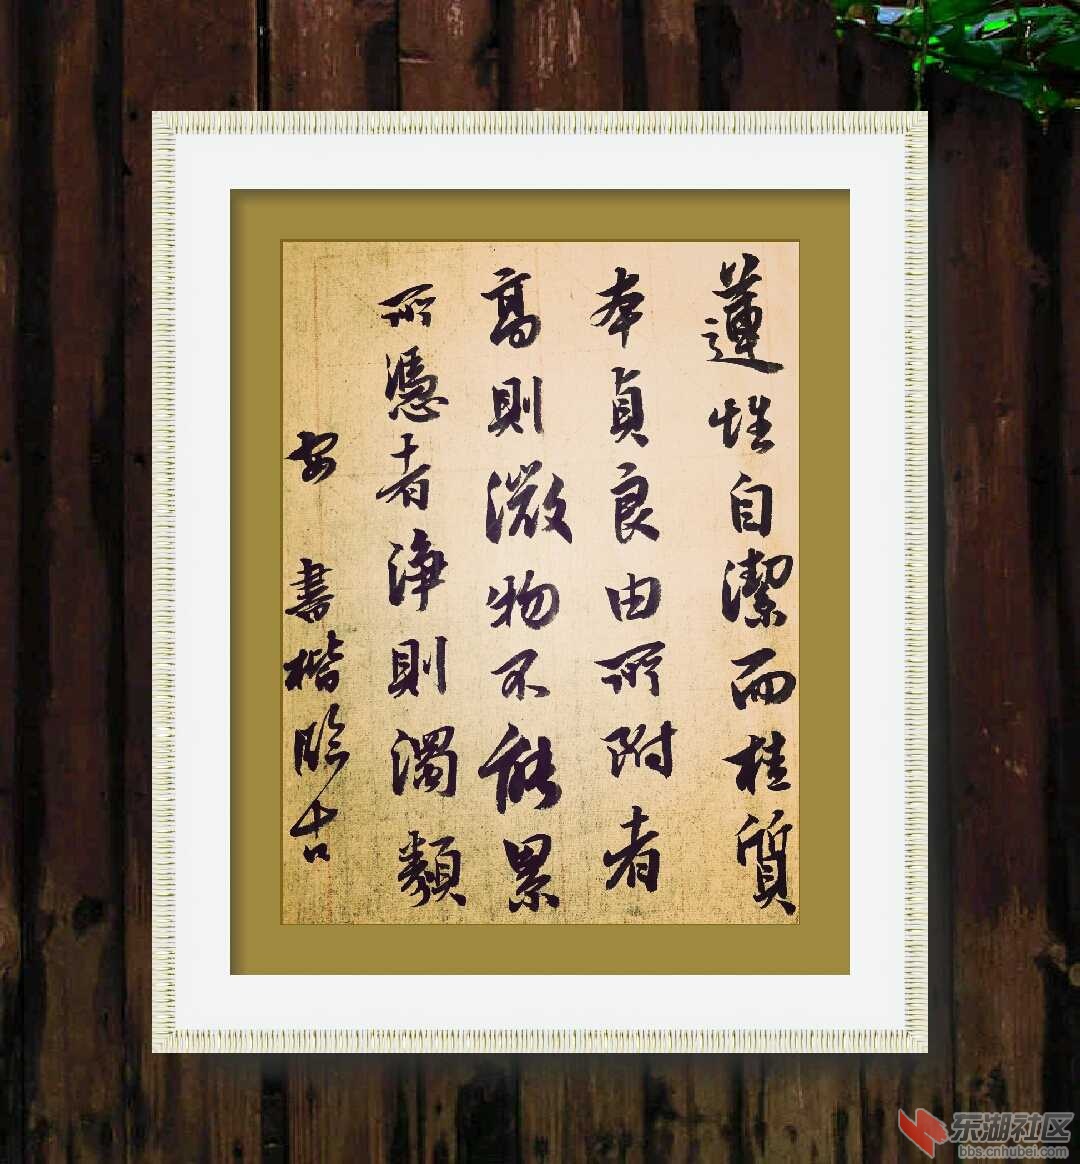 蓮性自潔而桂質
本貞良由所附者
高則微物不能累
所憑者浄則濁類
安 書楷臨古
东湖社区
bbs.cnhubei.com